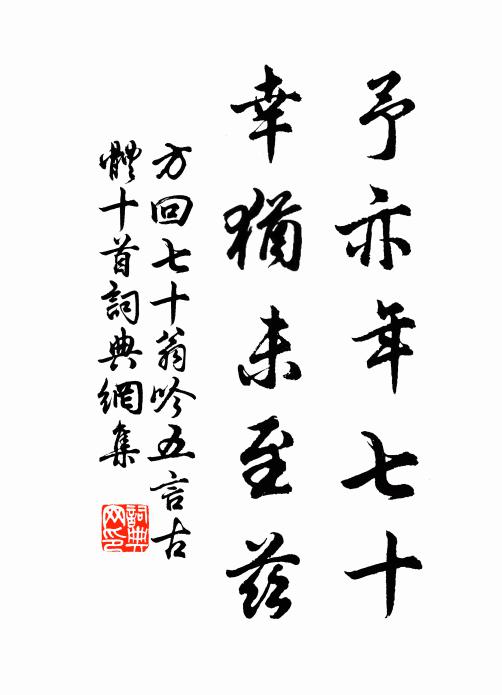 予亦年七十
幸猶未至兹
方回七十翁吟五言古
體十首詞典網集
詞典
网印